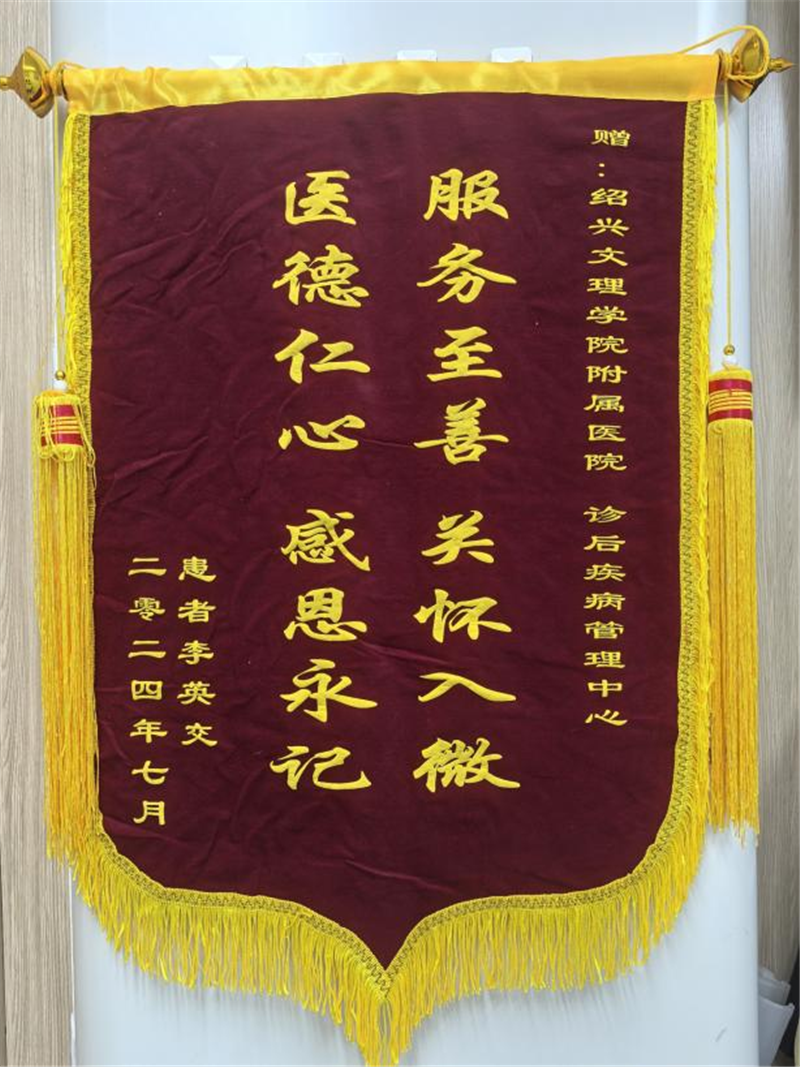 赠:绍兴文理学院附属医院 诊后疾病管理中心
服务至善 关怀入微
医德仁心 感恩永记
患者李英交
二零二四年七月